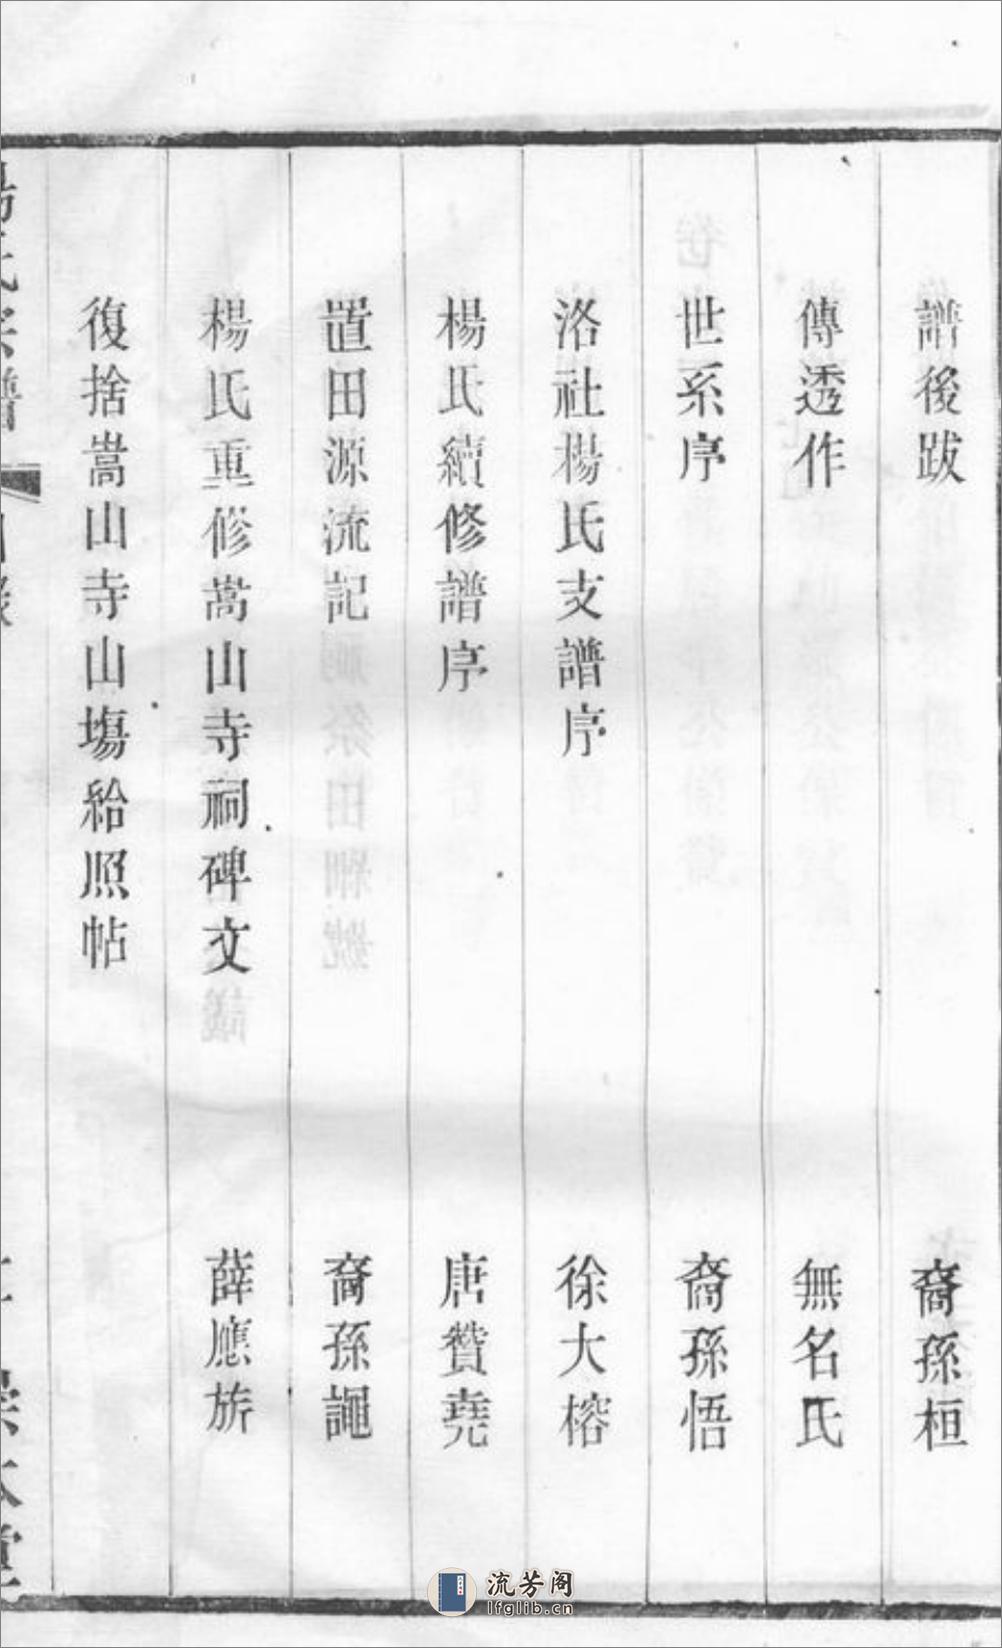 譜後跋 裔孫桓
傳透作 無名氏
世系序 裔孫悟
洛社楊氏支譜序 徐大榕
楊氏續修譜序 唐贊堯
置田源流記 裔孫繩
楊氏重修嵩山寺祠碑文 薛應旂
復捨嵩山寺山塲給照帖
流芳阁
lfglib.cn